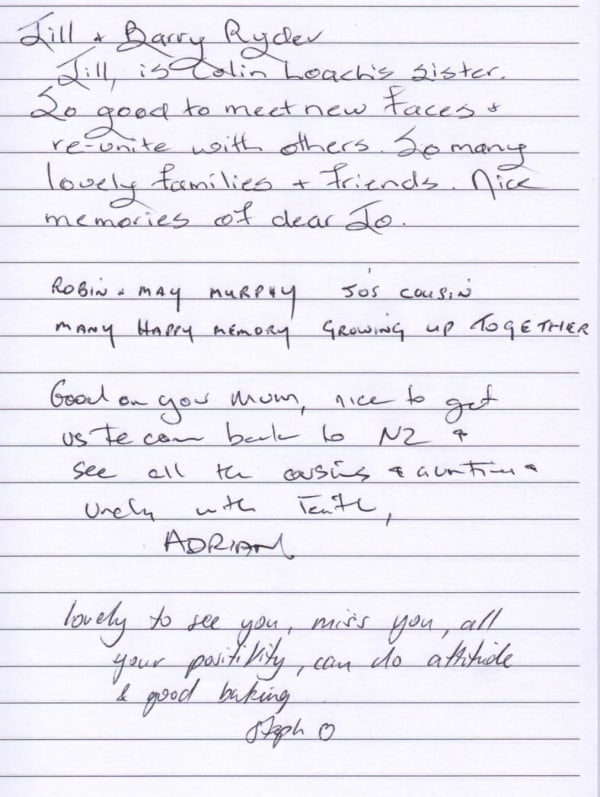 Jill + Barry Ryder
Jill, is Colin Loach's sister.
So good to meet new faces +
re-unite with others. So many
lovely families + friends. Nice
memories of dear Jo.
ROBIN + MAY MURPHY JO'S COUSIN
MANY HAPPY MEMORY GROWING UP TOGETHER
Good on you Mum, nice to get
us to come back to NZ +
see all the cousins + aunties +
uncly with
ADRIAN
lovely to see you, miss you, all
your positivity, can do attitude
& good baking
Steph O